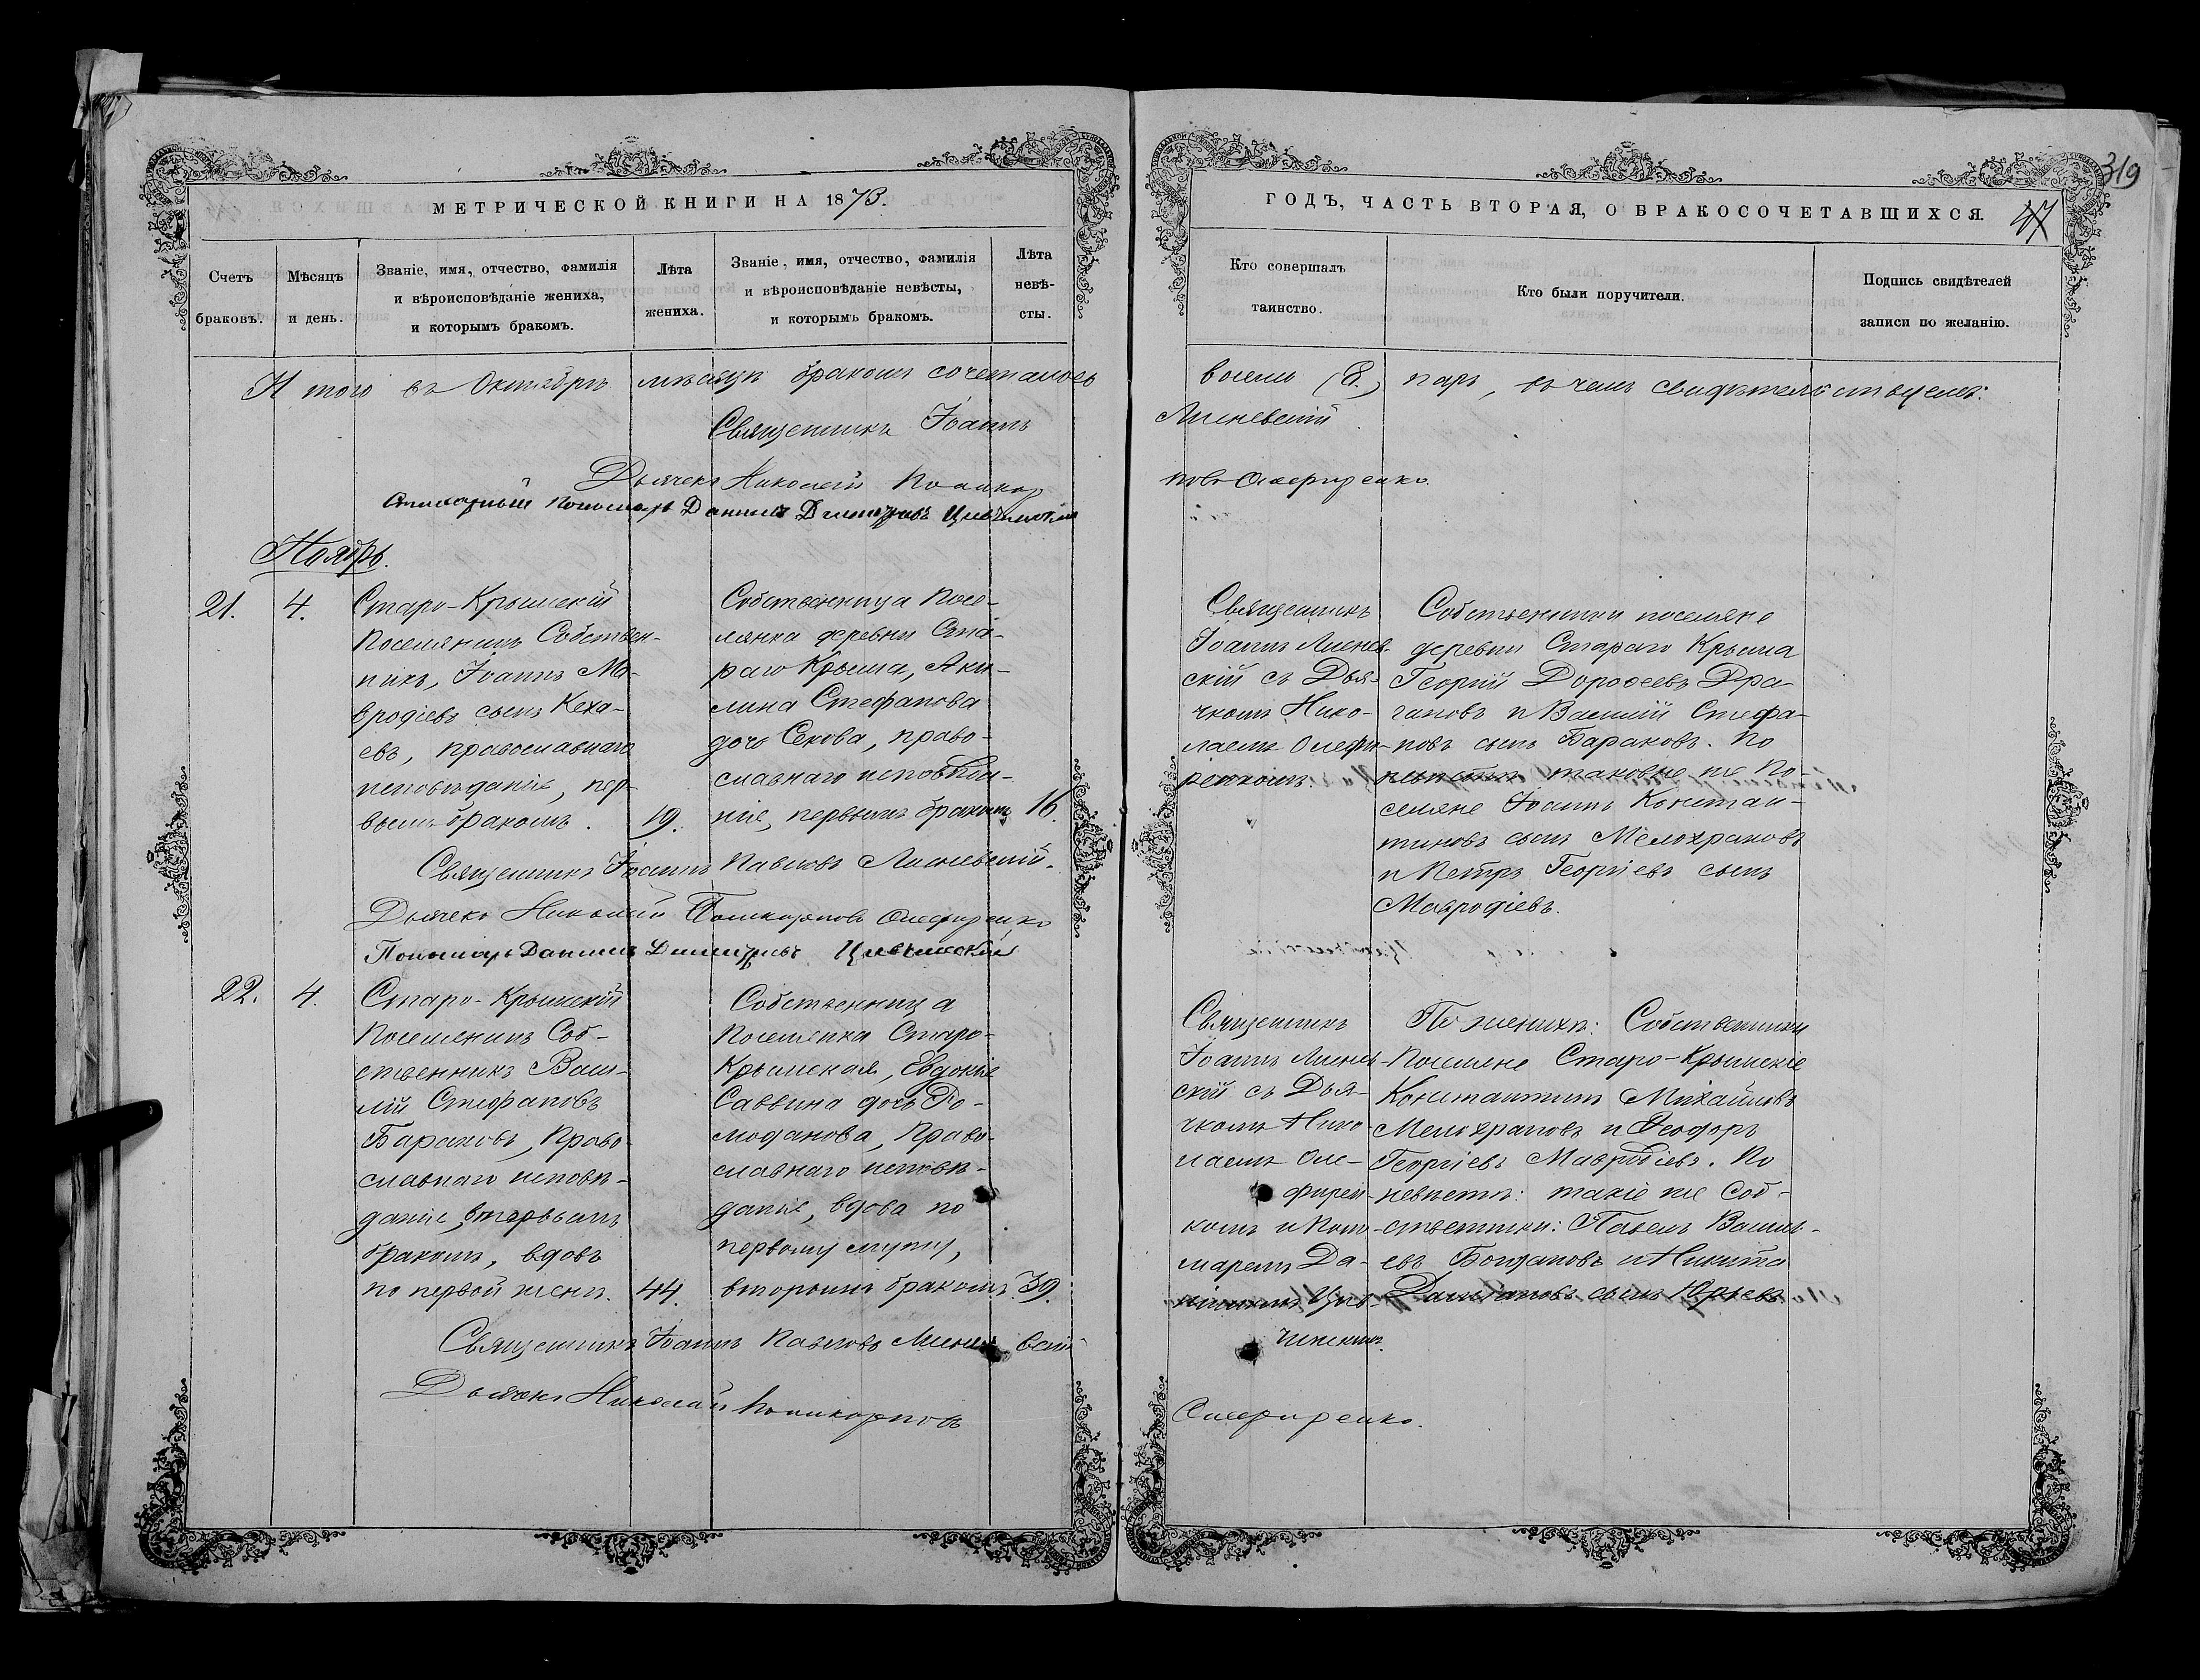 319
МЕТРИЧЕСКОЙ КНИГИ НА 1873.
ГОДЪ, ЧАСТЬ ВТОРАЯ, О БРАКОСОЧЕТАВШИХСЯ.
47
Счетъ браковъ.
Мѣсяцъ и день.
Званіе, имя, отчество, фамилія
и вѣроисповѣданіе жениха,
и которымъ бракомъ.
Лѣта жениха.
Званіе, имя, отчество, фамилія
и вѣроисповѣданіе невѣсты,
и которымъ бракомъ.
Лѣта невѣ-
сты.
Кто совершалъ
таинство.
Кто были поручители.
Подпись свидѣтелей
записи по желанію.
И того въ Октябрѣ мѣсяцѣ бракомъ сочеталось восемь (8.) паръ, въ чемъ свидѣтельствуемъ:
Священникъ Іоаннъ Лисневскій
Дьячекъ Николай Поликарповъ Олефиренко.
Пономарь Даниилъ Димитріевъ
Ноябрь.
21.
4.
Старо-Крымскій
Поселянинъ Собствен-
никъ, Іоаннъ Ма-
вродіевъ сынъ Кеха-
евъ, православнаго
исповѣданія, пер-
вымъ бракомъ.
19.
Собственница Посе-
лянка деревни Ста-
раго Крыма, Аки-
лина Стефанова
дочь Секова, право-
славнаго исповѣда-
нія, первымъ бракомъ
16.
Священникъ
Іоаннъ Лиснев-
скій съ Дья-
чкомъ Нико-
лаемъ Олефи-
ренкомъ.
Собственники поселяне
деревни Стараго Крыма
Георгій Дорофеевъ Дра-
гановъ и Василій Стефа-
новъ сынъ Бараховъ. По
невѣстѣ таковые же По-
селяне Іоаннъ Констан-
тиновъ сынъ Мелохрановъ
и Петръ Георгіевъ сынъ
Мавродіевъ.
Священникъ Іоаннъ Павловъ Лисневскій.
Дьячекъ Николай Поликарповъ Олефиренко
Пономарь Даниилъ Димитріевъ
22.
4.
Старо-Крымскій
Поселянинъ Соб-
ственникъ Васи-
лій Стефановъ
Бараховъ, Право-
славнаго исповѣ-
данія, вторымъ
бракомъ, вдовъ
по первой женѣ.
44.
Собственница
Поселянка Старо-
Крымская, Евдокія
Саввина дочь Ро-
моданова, Право-
славнаго исповѣ-
данія, вдова по
первому мужу,
вторымъ бракомъ.
39.
Священникъ
Іоаннъ Лиснев-
скій съ Дья-
чкомъ Нико-
лаемъ Оле-
фирен-
комъ и Поно-
маремъ Да-
По женихѣ: Собственники
Поселяне Старо-Крымскіе
Константинъ Михайловъ
Мелохрановъ и Феодоръ
Георгіевъ Мавродіевъ. По
невѣстѣ: такіе же Соб-
ственники: Павелъ Василь-
евъ Богдановъ и Никита
сынъ Юрьевъ
Священникъ Іоаннъ Павловъ Лисневскій
Дьячекъ Николай Поликарповъ Олефиренко.